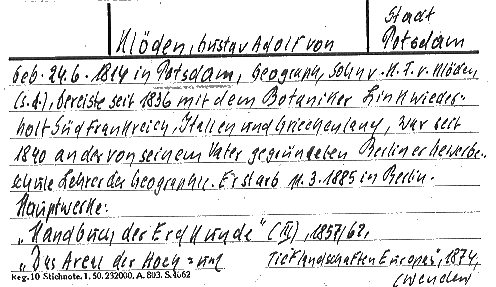 Stadt
Klöden, Gustav Adolf von Potsdam
geb. 24.6.1814 in Potsdam, Geograph, Sohn v. K.F.v. Klöden
(s.d.), bereiste seit 1836 mit dem Botaniker Link wieder-
holt Südfrankreich, Italien und Griechenland, war seit
1840 an der von seinem Vater gegründeten Berliner Gewerbe-
schule Lehrer der Geographie. Er starb 11.3.1885 in Berlin.
Hauptwerke:
„Handbuch der Erdkunde" (III), 1857/62,
„Das Areal der Hoch- und Tieflandschaften Europas", 1874,
Reg. 10 Stichnote. 1. 50. 232000. A. 803. S. 4062
(wenden